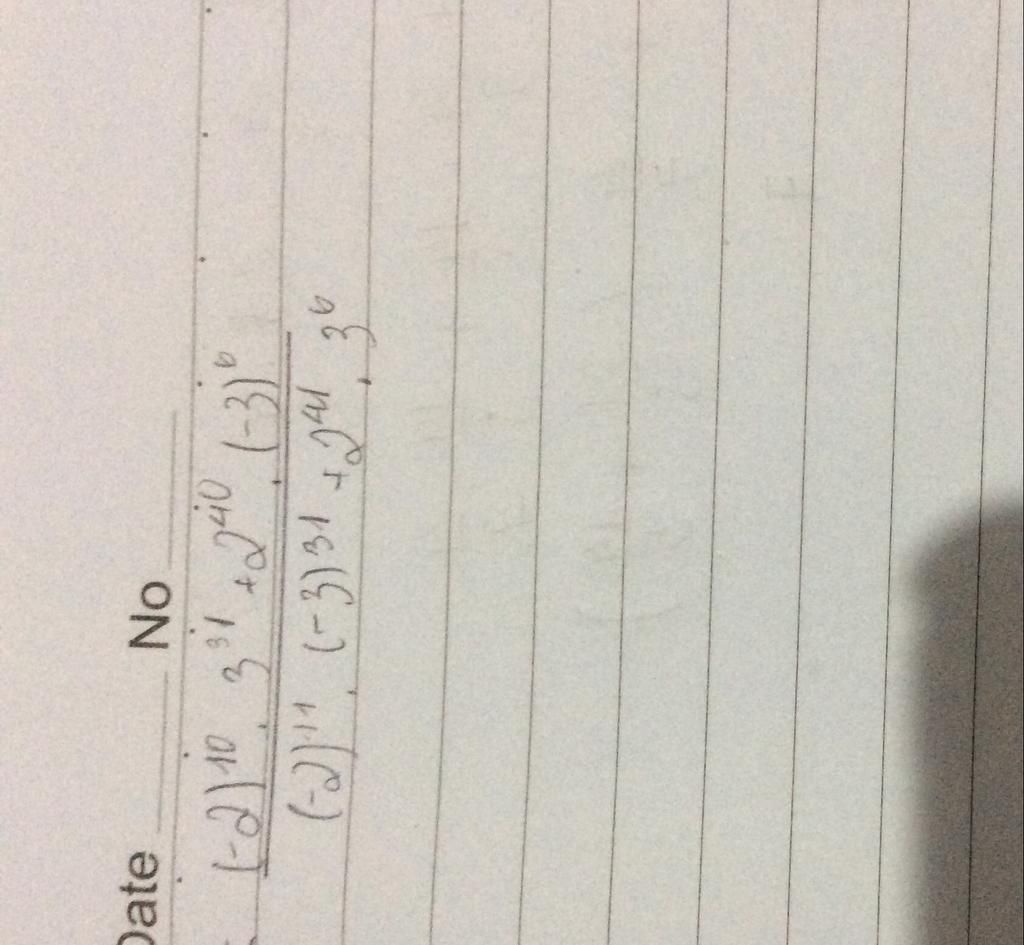 Date No
(-2)^10 . 3^31 + 2^40 . (-3)^6
(-2)^11 . (-3)^31 + 2^41 . 3^6